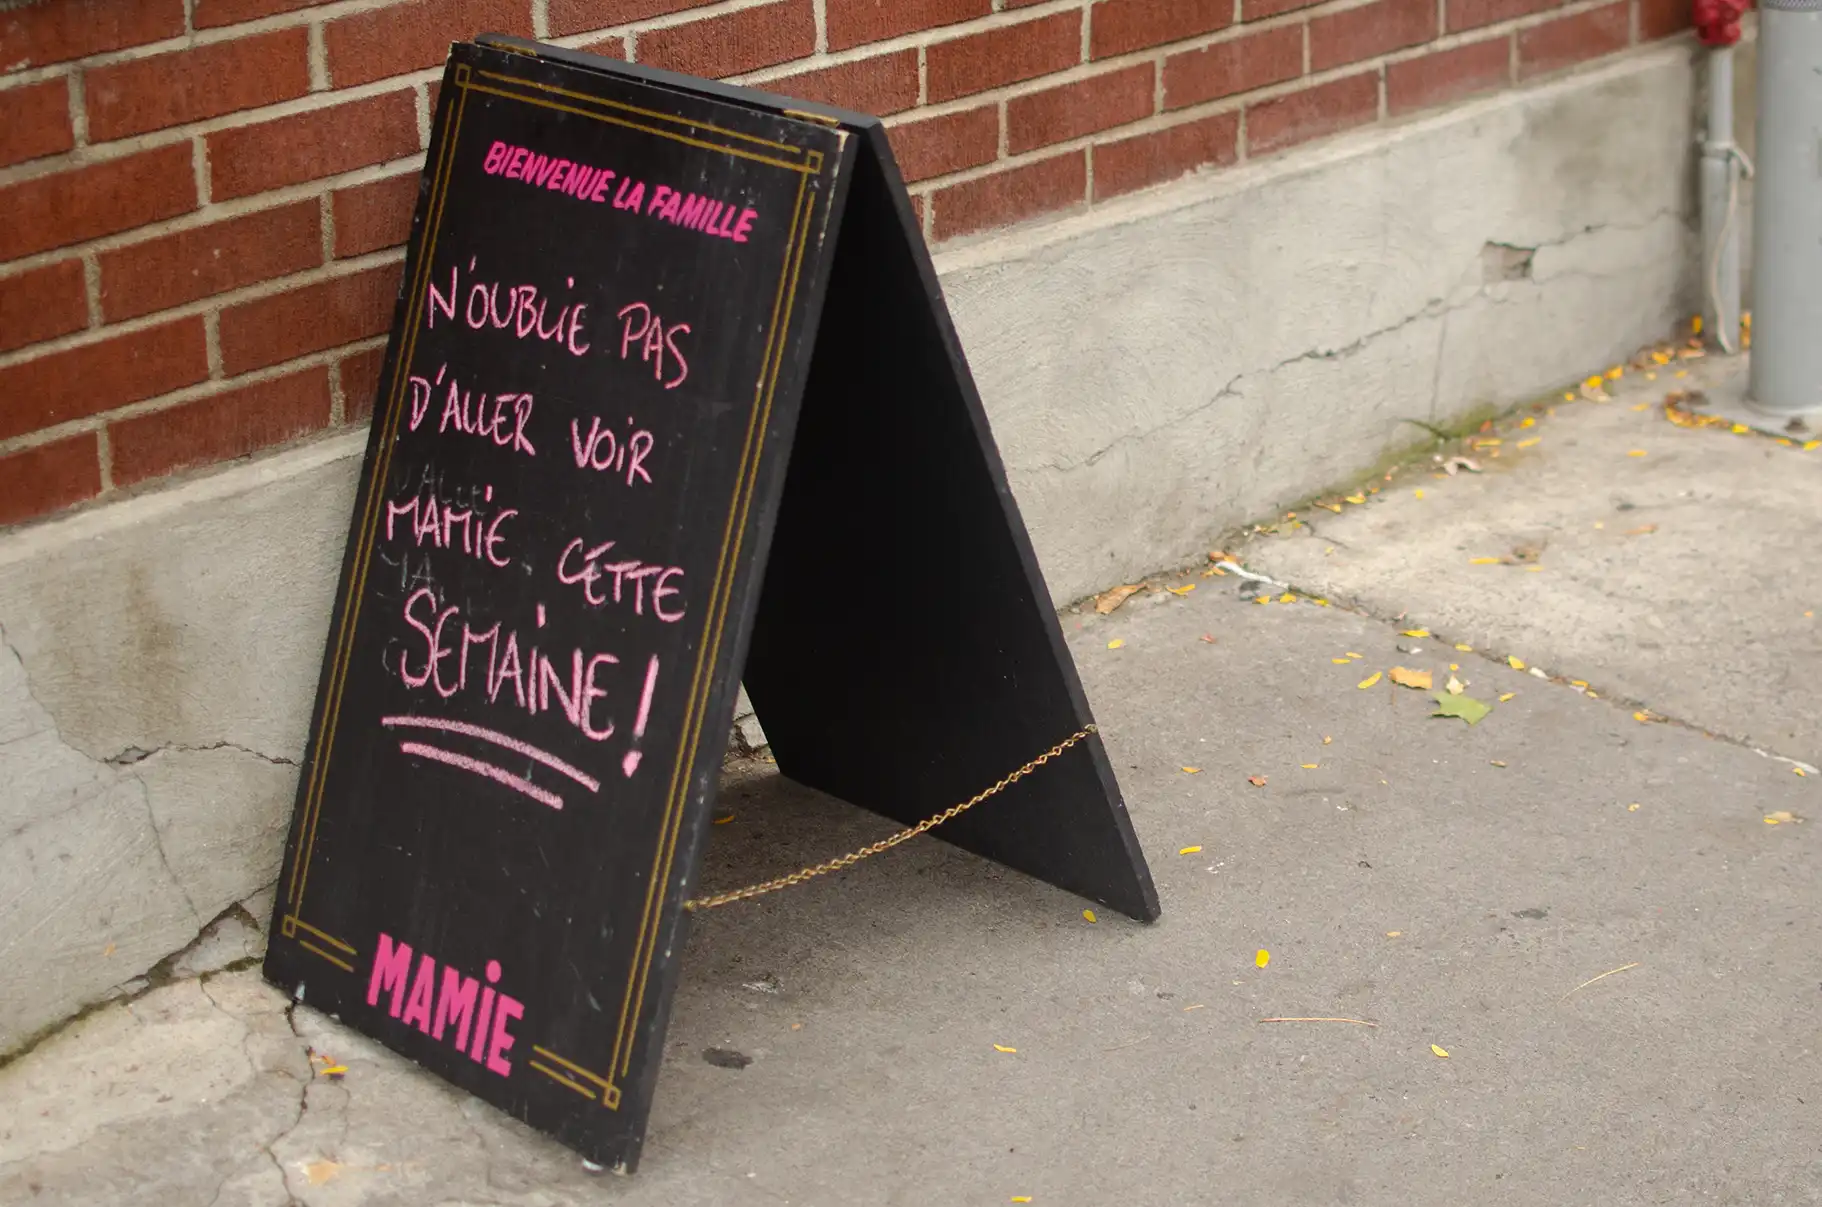 BIENVENUE LA FAMILLE
N'OUBLIE PAS
D'ALLER VOIR
MAMIE CETTE
SEMAINE!
MAMIE